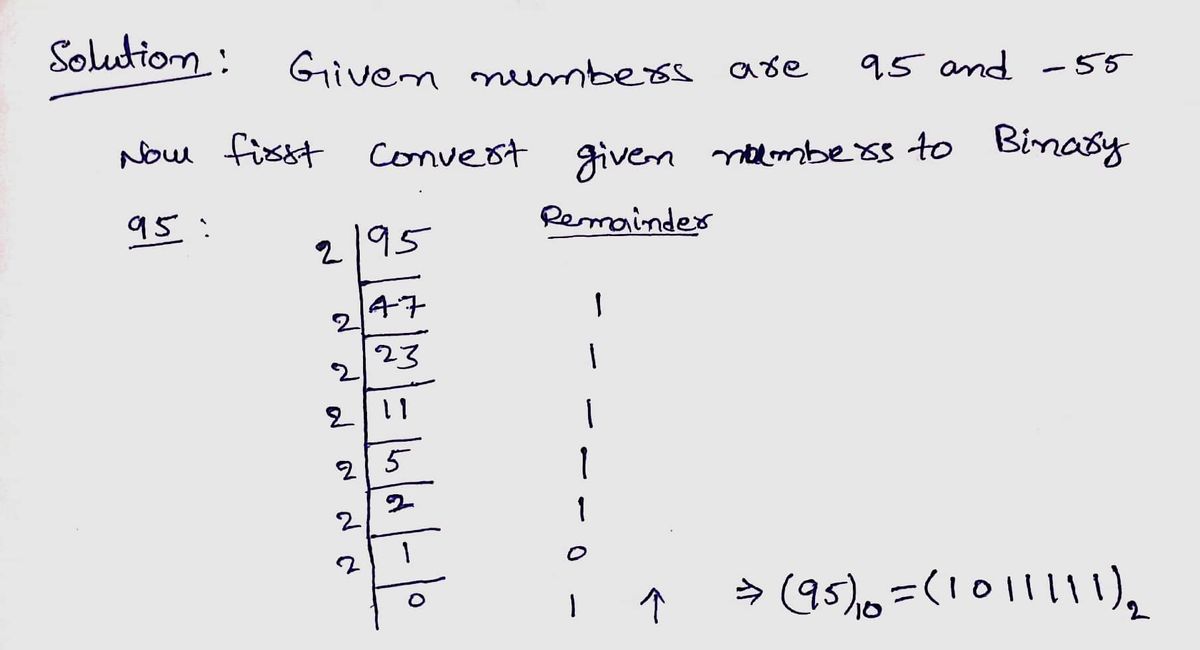 Solution: Given numbers are 95 and -55
Now first convert given numbers to Binary
95: Remainder
2 | 95
2 | 47 1
2 | 23 1
2 | 11 1
2 | 5 1
2 | 2 1
2 | 1 0
0 1 ↑ ⇒ (95)₁₀ = (1011111)₂